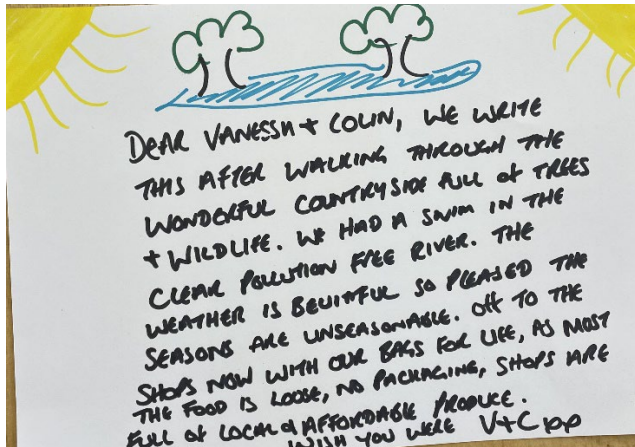 DEAR VANESSA + COLIN, WE WRITE
THIS AFTER WALKING THROUGH THE
WONDERFUL COUNTRYSIDE FULL OF TREES
+ WILDLIFE. WE HAD A SWIM IN THE
CLEAR POLLUTION FREE RIVER. THE
WEATHER IS BEUITFUL SO PLEASED THE
SEASONS ARE UNSEASONABLE. OFF TO THE
SHOPS NOW WITH OUR BAGS FOR LIFE, AS MOST
THE FOOD IS LOOSE, NO PACKAGING, SHOPS ARE
FULL OF LOCAL & AFFORDABLE PRODUCE.
WISH YOU WERE V+C